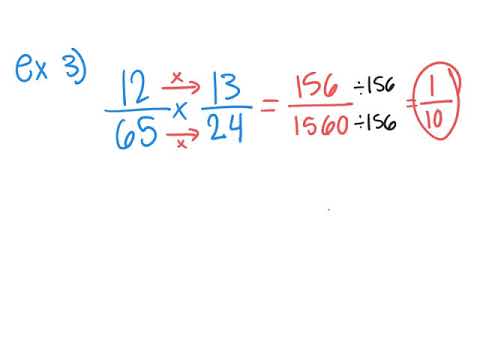 ex 3)
12/65 x 13/24 = 156/1560 ÷156/÷156 = 1/10
x
x